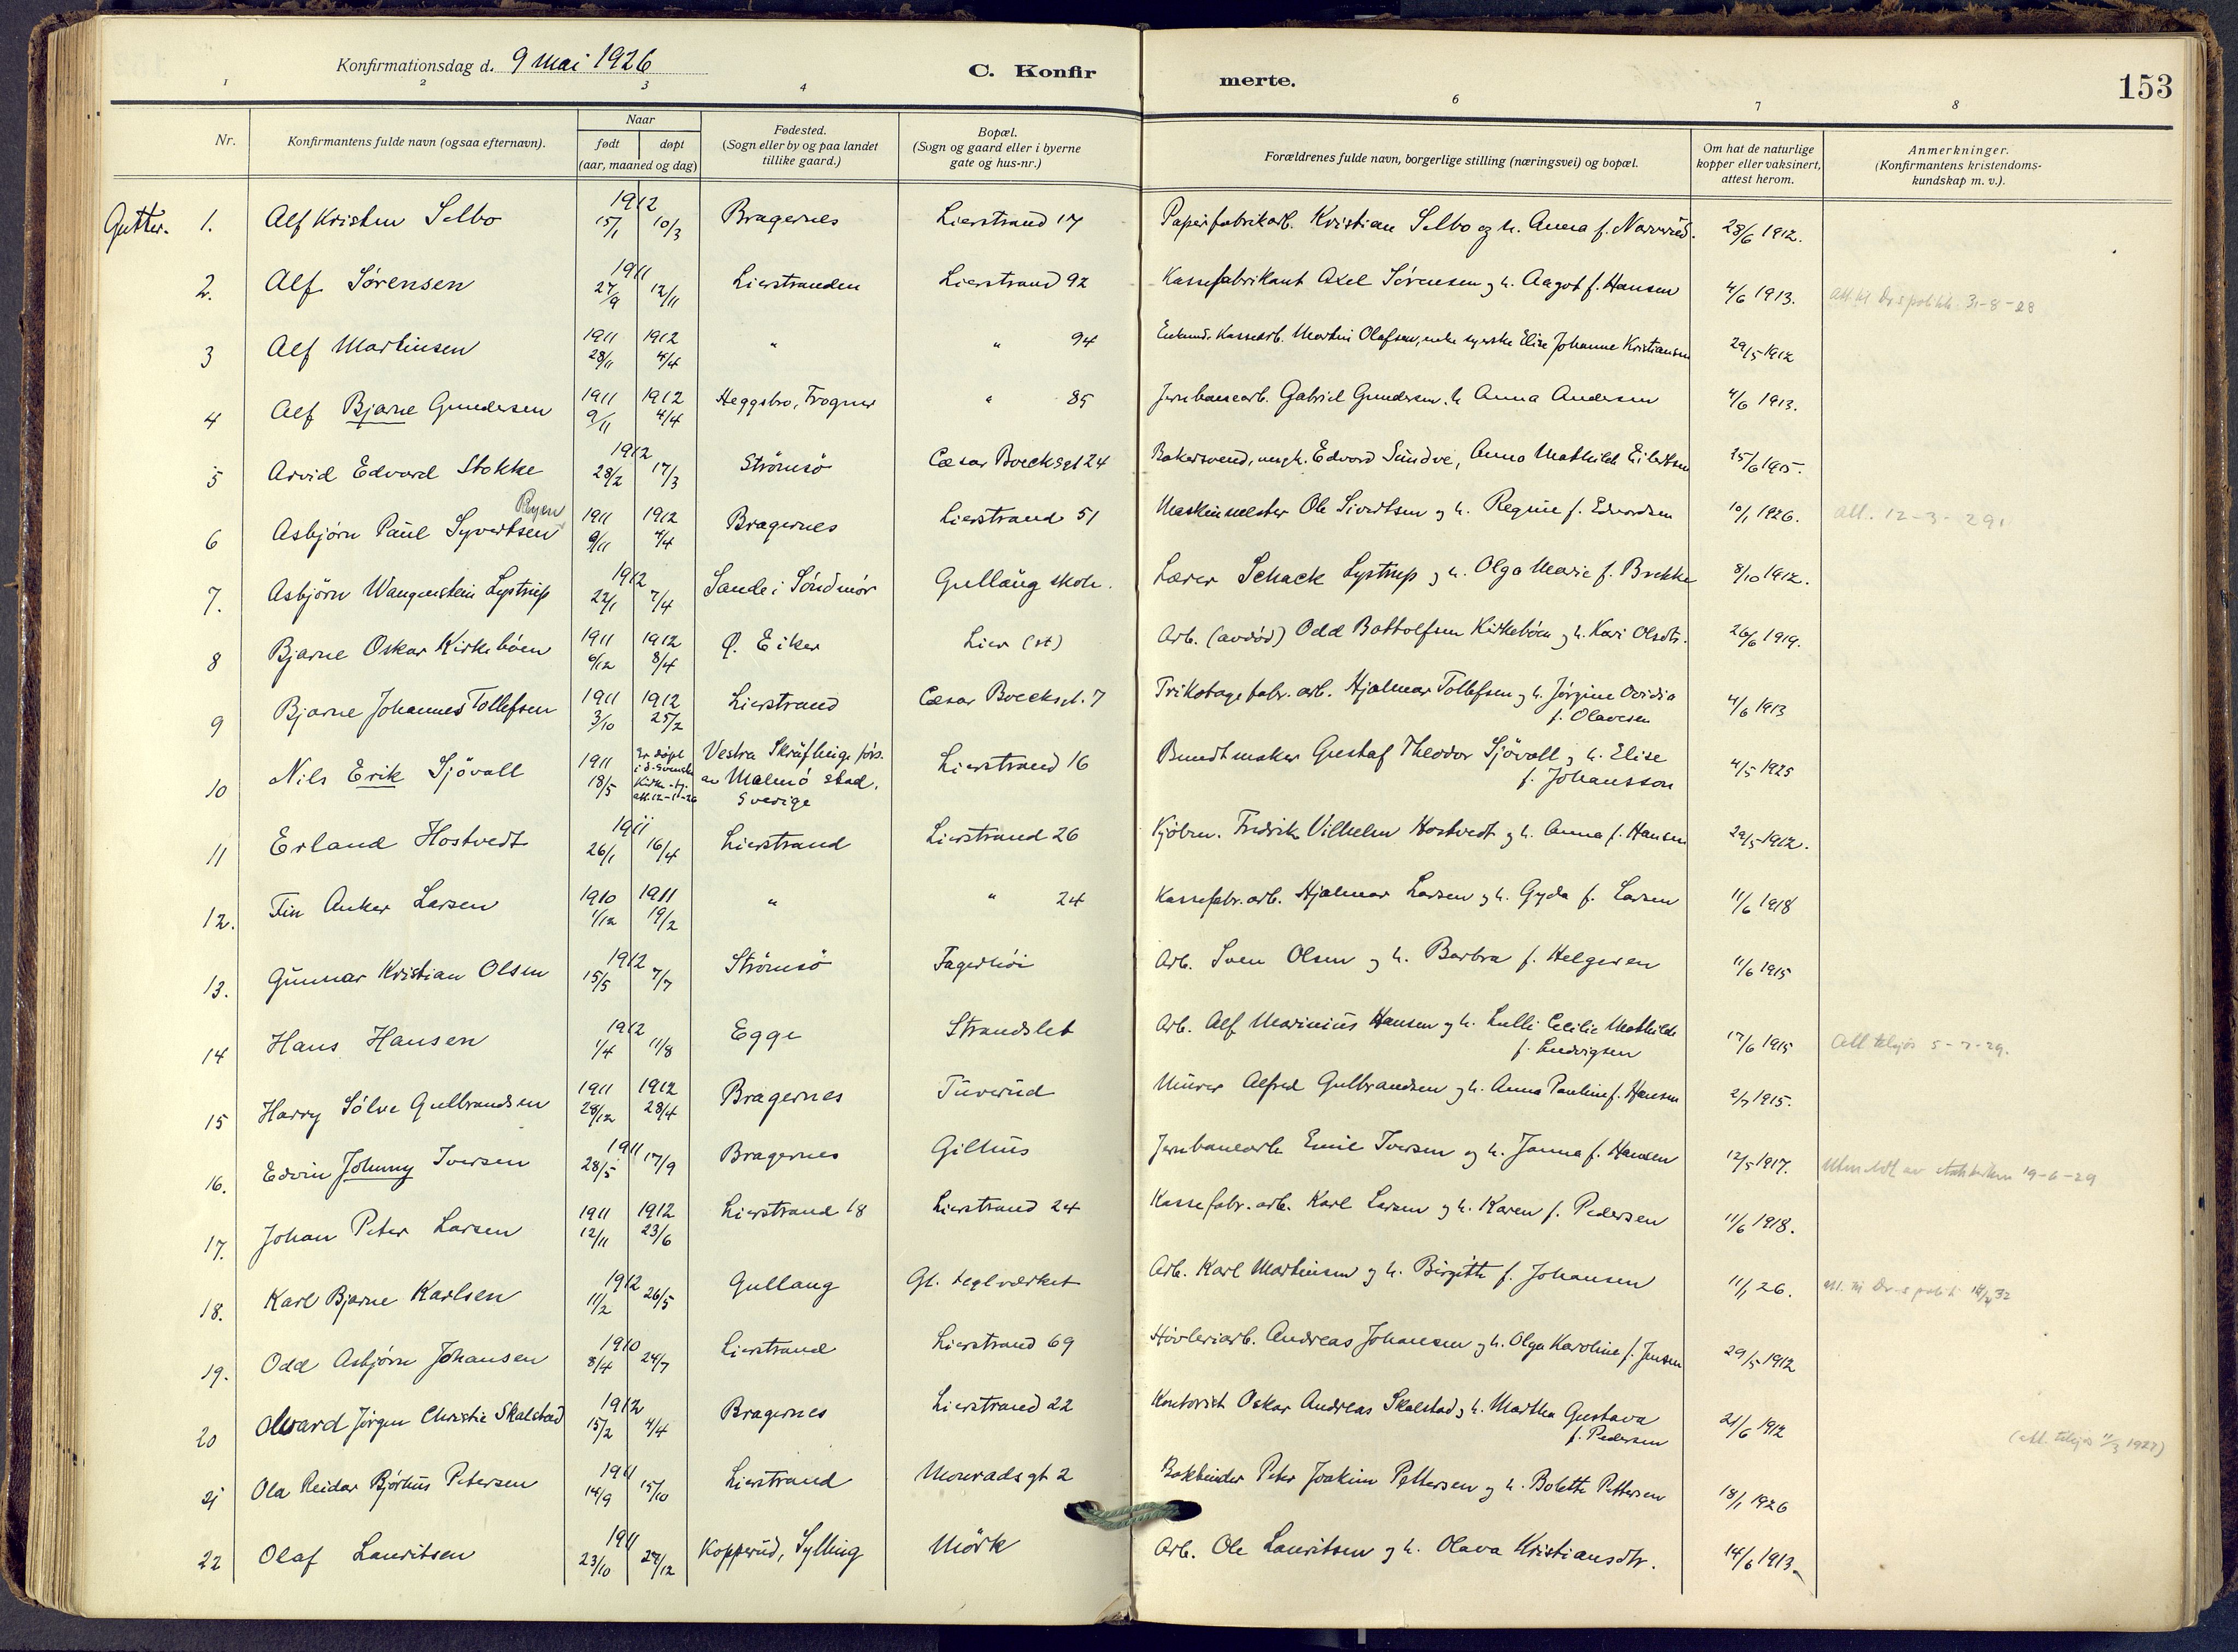 Konfirmationsdag d. 9 Mai 1926
C. Konfir merte.
153
1 2 3 4 6 7 8
Nr.
Konfirmantens fulde navn (ogsaa efternavn).
Naar
født døpt
(aar, maaned og dag)
Fødested.
(Sogn eller by og paa landet
tillike gaard.)
Bopæl.
(Sogn og gaard eller i byerne
gate og hus-nr.)
Forældrenes fulde navn, borgerlige stilling (næringsvei) og bopæl.
Om hat de naturlige
kopper eller vaksinert,
attest herom.
Anmerkninger.
(Konfirmantens kristendoms-
kundskap m. v.).
Gutter. 1. Alf Kristen Selbo 1912 15/1 10/3 Bragernes Lierstrand 17 Papirfabrikarb. Kristian Selbo og h. Anna f. 28/6 1912.
2. Alf Sørensen 1911 27/9 12/11 Lierstranden Lierstrand 92 Kassefabrikant Axel Sörensen og h. Aagot f. Hansen 4/6 1913. 31-8-28
3 Alf Martinsen 1911 28/11 1912 4/4 " " 94 Kassearb. Martin Olafsen, syerske Elise Johanne Kristiansen 29/5 1912
4 Alf Bjarne Gundersen 1911 9/11 1912 4/4 Heggsbro, Frogner " 85 Jernbanearb. Gabriel Gundersen. h Anna Andersen 4/6 1913.
5 Arvid Edvard Stokke 1912 28/2 17/3 Strömsö Cæsar Boecksgt 24 Bakersvend, ungk. Edvard Sundve, Anna Mathilde Eilertsen 25/6 1915.
Ryen
6 Asbjörn Paul Syvertsen 1911 9/11 1912 4/4 Bragernes Lierstrand 51 Maskinmester Ole Sivertsen og h. Regine f. Edvardsen 10/1 1926. att. 12-3-29
7. Asbjörn Wangenstein Lystrup 1912 22/1 7/4 Sande i Söndmör Gullaug skole. Lærer Schack Lystrup og h. Olga Marie f. Brekke 8/10 1912.
8 Bjarne Oskar Kirkebøen 1911 6/12 1912 8/4 Ø. Eiker Lier (st) Arb. (avdöd) Odd Bottolfsen Kirkebøen og h. Kari Olsdtr. 26/6 1919.
9 Bjarne Johannes Tollefsen 1911 3/10 1912 25/2 Lierstrand Cæsar Boecksgt. 7 Trikotagefabr. arb. Hjalmar Tollefsen og h. Jörgine Ovidia
f. Olavesen 4/6 1913
10 Nils Erik Sjövall 1911 18/5 Er døpt
i d. svenske
Kirke
att. 12-1-26 Vestra Skräflinge förs.
av Malmö stad,
Sverige Lierstrand 16 Bundtmaker Gustaf Theodor Sjövall og h. Elise
f. Johansson 4/5 1925
11 Erland Hostvedt 1911 26/1 16/4 Lierstrand Lierstrand 26 Kjöbm. Fredrik Vilhelm Hostvedt og h. Anna f. Hansen 29/5 1912.
12. Fin Anker Larsen 1910 1/12 1911 19/2 " " 24 Kassefabr. arb. Hjalmar Larsen og h. Gyda f. Larsen 11/6 1918
13. Gunnar Kristian Olsen 1912 15/5 7/7 Strömsö Fagerhöi Arb. Sven Olsen og h. Barbra f. Helgesen 11/6 1915
14 Hans Hansen 1912 1/4 11/8 Egge Strandslet Arb. Alf Marinius Hansen og h. Lulli Cecilie Mathilde
f. Ludvigsen 17/6 1915 Att tilsjøs 5-7-29.
15 Harry Sölve Gulbrandsen 1911 28/12 1912 28/4 Bragernes Tuverud Murer Alfred Gulbrandsen og h. Anna Pauline f. Hansen 2/7 1915.
16. Edvin Johnny Iversen 1911 28/5 17/9 Bragernes Gilhus Jernbanearb Emil Iversen og h. Janna f. Hansen 12/5 1917. Utmeldt av statskirken 19-6-29
17. Johan Peter Larsen 1911 12/11 1912 23/6 Lierstrand 18 Lierstrand 24 Kassefabr. arb. Karl Larsen og h. Karen f. Pedersen 11/6 1918.
18. Karl Bjarne Karlsen 1912 11/2 26/5 Gullaug Gl. teglverket Arb. Karl Martinsen og h. Birgitte f. Johansen 11/1 26. att. til Dr-s politi 32
19. Odd Asbjörn Johansen 1910 8/4 24/7 Lierstrand Lierstrand 69 Høvleriarb. Andreas Johansen og h. Olga Karoline f. Jensen 29/5 1912
20 Olvard Jörgen Christie Skalstad 1912 15/2 4/4 Bragernes Lierstrand 22 Kontorist Oskar Andreas Skalstad og h. Martha Gustava
f. Pedersen 21/6 1912 (att. tilsjøs 11/3 1927)
21 Ola Reidar Björhus Petersen 1911 14/9 15/10 Lierstrand Monradsgt 2 Bokbinder Peter Joakim Pettersen og h. Bolette Pettersen 18/1 1926
22 Olaf Lauritsen 1911 23/10 27/12 Kopperud, Sylling Mörk Arb. Ole Lauritsen og h. Olava Kristiansdtr. 14/6 1913.